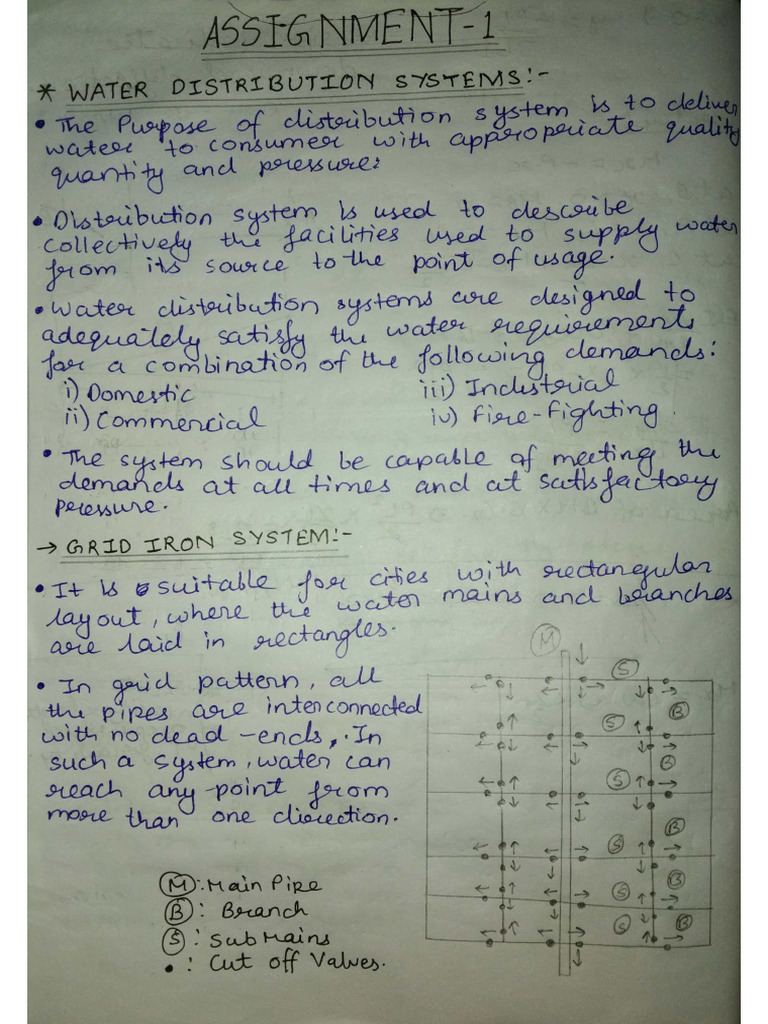 ASSIGNMENT-1
* WATER DISTRIBUTION SYSTEMS:-
• The Purpose of distribution system is to deliver
water to consumer with appropriate quality
quantity and pressure:
• Distribution system is used to describe
collectively the facilities used to supply water
from its source to the point of usage.
• Water distribution systems are designed to
adequately satisfy the water requirements
for a combination of the following demands:
i) Domestic iii) Industrial
ii) Commercial iv) Fire-Fighting.
• The system should be capable of meeting the
demands at all times and at satisfactory
pressure.
→ GRID IRON SYSTEM:-
• It is suitable for cities with rectangular
layout, where the water mains and branches
are laid in rectangles.
• In grid pattern, all
the pipes are interconnected
with no dead-ends, . In
such a system, water can
reach any-point from
more than one direction.
M
S
B
S
B
S
B
S
B
S
B
S
(M): Main Pipe
(B): Branch
(S): Sub Mains
• : Cut off Valves.